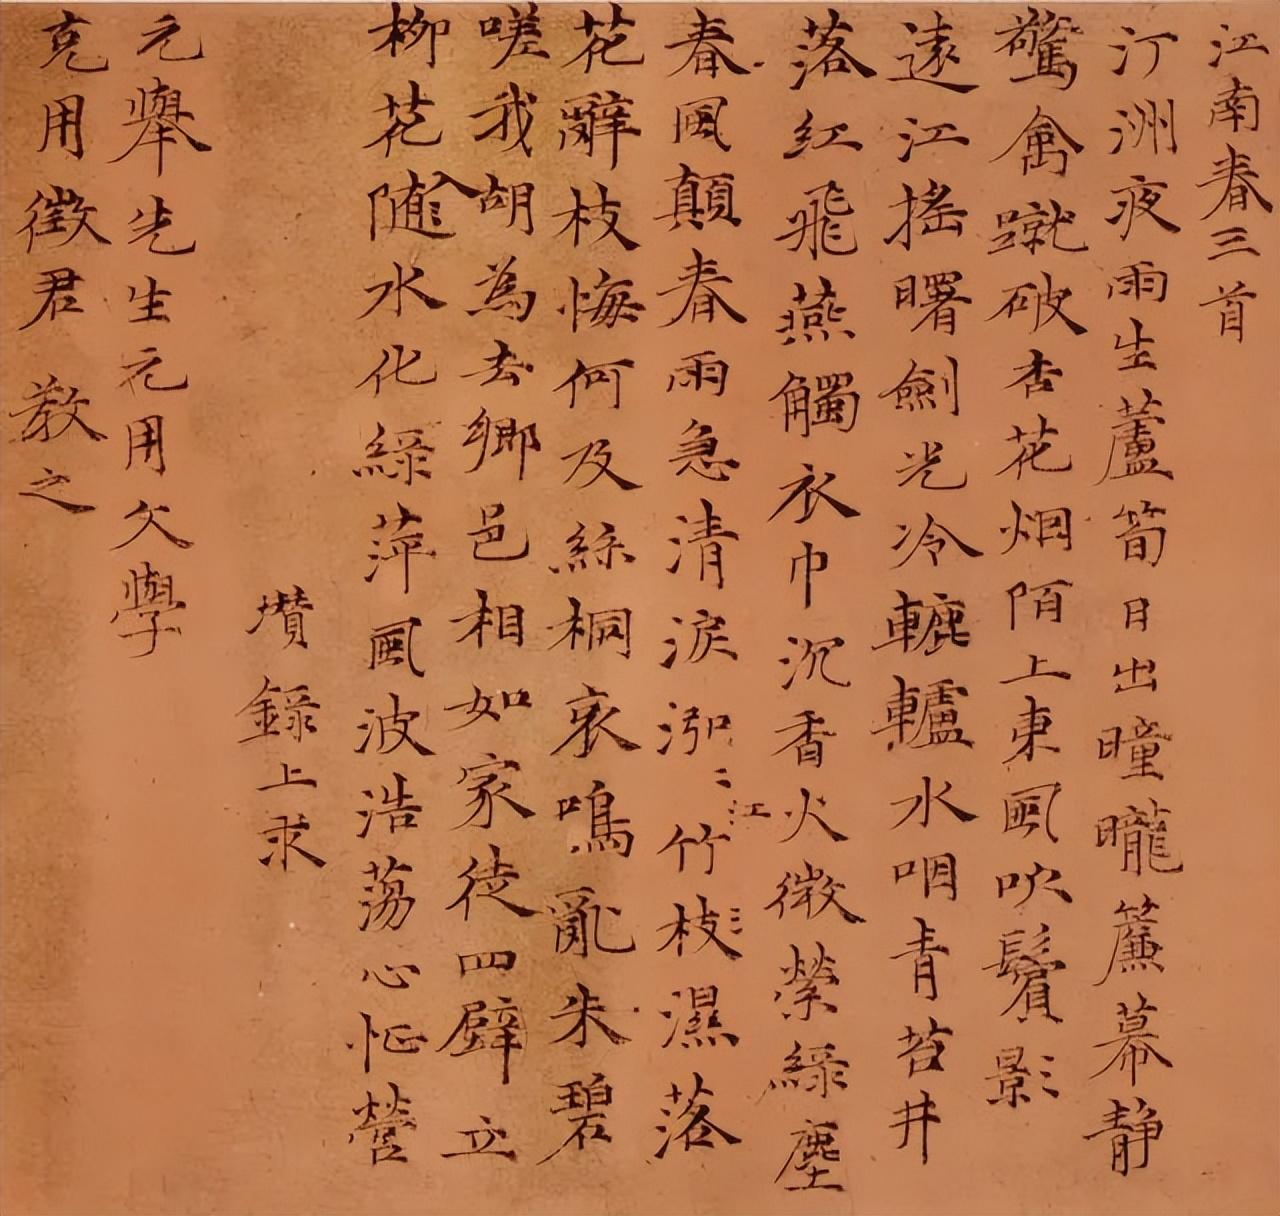 江南春三首
汀洲夜雨生蘆筍日出曈曨簾幕静
驚禽蹴破杏花烟陌上東風吹鬢影
遠江搖曙劍光冷轆轤水咽青苔井
落紅飛燕觸衣巾沉香火微縈綠塵
春風顛春雨急清淚泓〻江竹枝濕落
花辭枝悔何及絲桐哀鳴亂朱碧
嗟我胡為去鄉邑相如家徒四壁立
柳花入隨水化綠萍風波浩蕩心怔營
瓚錄上求
元舉先生元用文學
克用徵君 教之